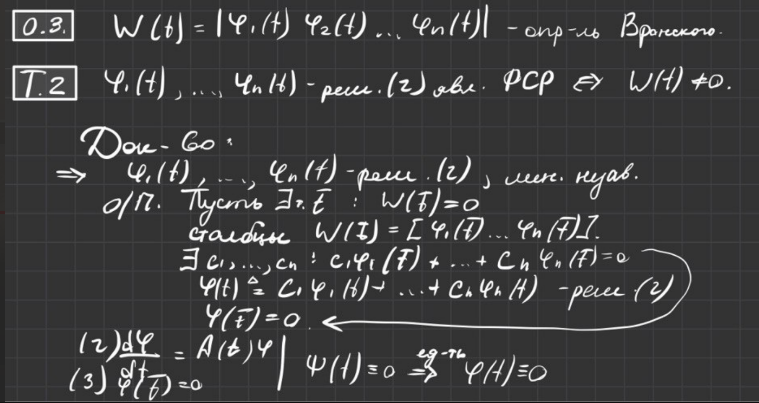 О.3. W(t) = |φ₁(t) φ₂(t) ... φₙ(t)| - опр-ль Вронского.
Т.2 φ₁(t), ..., φₙ(t) - реш. (2) явл. ФСР ⇔ W(t) ≠ 0.
Док-во:
⇒ φ₁(t), ..., φₙ(t) - реш. (2), лин. незав.
О/П. Пусть ∃ т. t̄ : W(t̄) = 0
столбцы W(t̄) = [φ₁(t̄) ... φₙ(t̄)].
∃ c₁, ..., cₙ : c₁φ₁(t̄) + ... + cₙφₙ(t̄) = 0
φ(t) ≜ c₁φ₁(t) + ... + cₙφₙ(t) - реш (2)
φ(t̄) = 0.
(2) dφ/dt = A(t)φ | Ψ(t) ≡ 0 ед-ть ⇒ φ(t) ≡ 0
(3) φ(t̄) = 0